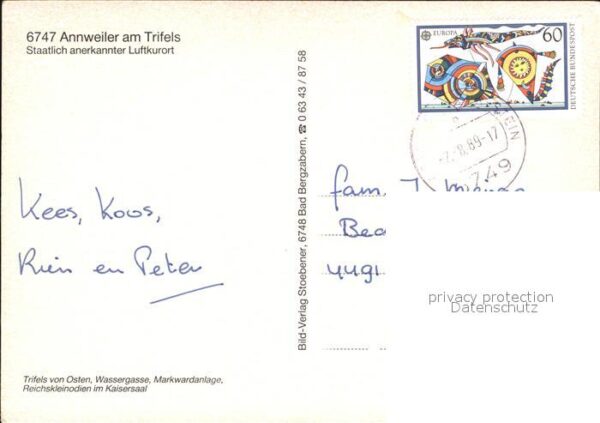 6747 Annweiler am Trifels
Staatlich anerkannter Luftkurort
EUROPA
60
DEUTSCHE BUNDESPOST
.8.89-17
749
Kees, Koos,
Rien en Peter
Bild-Verlag Stoebener, 6748 Bad Bergzabern, ☎ 0 63 43 / 87 58
fam. J.
Bea
4491
privacy protection
Datenschutz
Trifels von Osten, Wassergasse, Markwardanlage,
Reichskleinodien im Kaisersaal